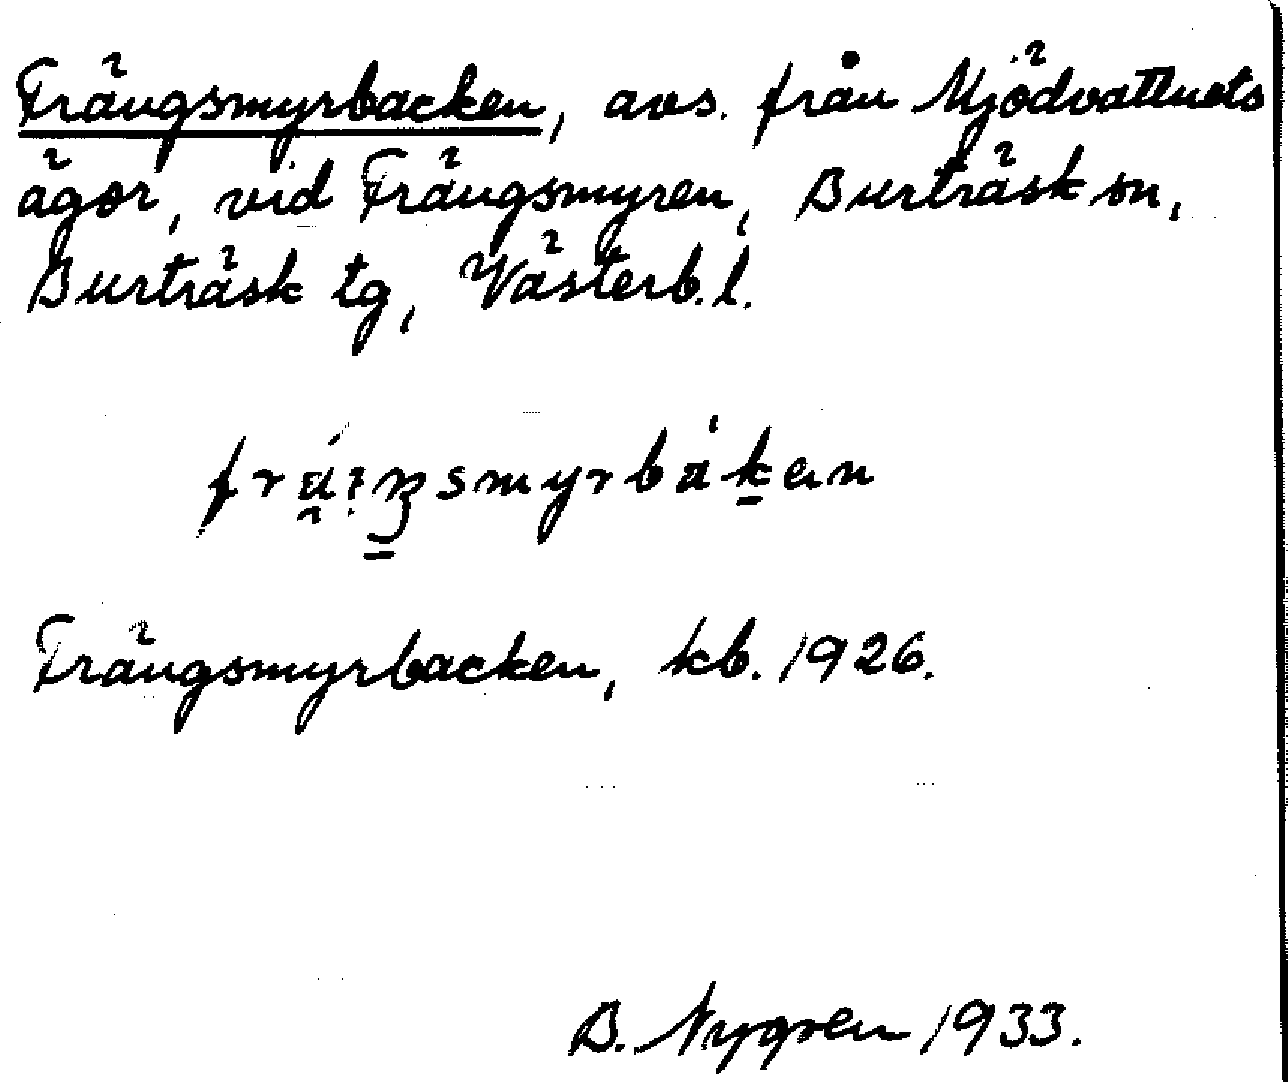 Frängsmyrbacken, avs. från Mjödvattnets
ägor, vid Frängsmyren, Burträsk sn,
Burträsk tg, Västerb. l.
Frängsmyrbacken, kb. 1926.
B. Nygren 1933.